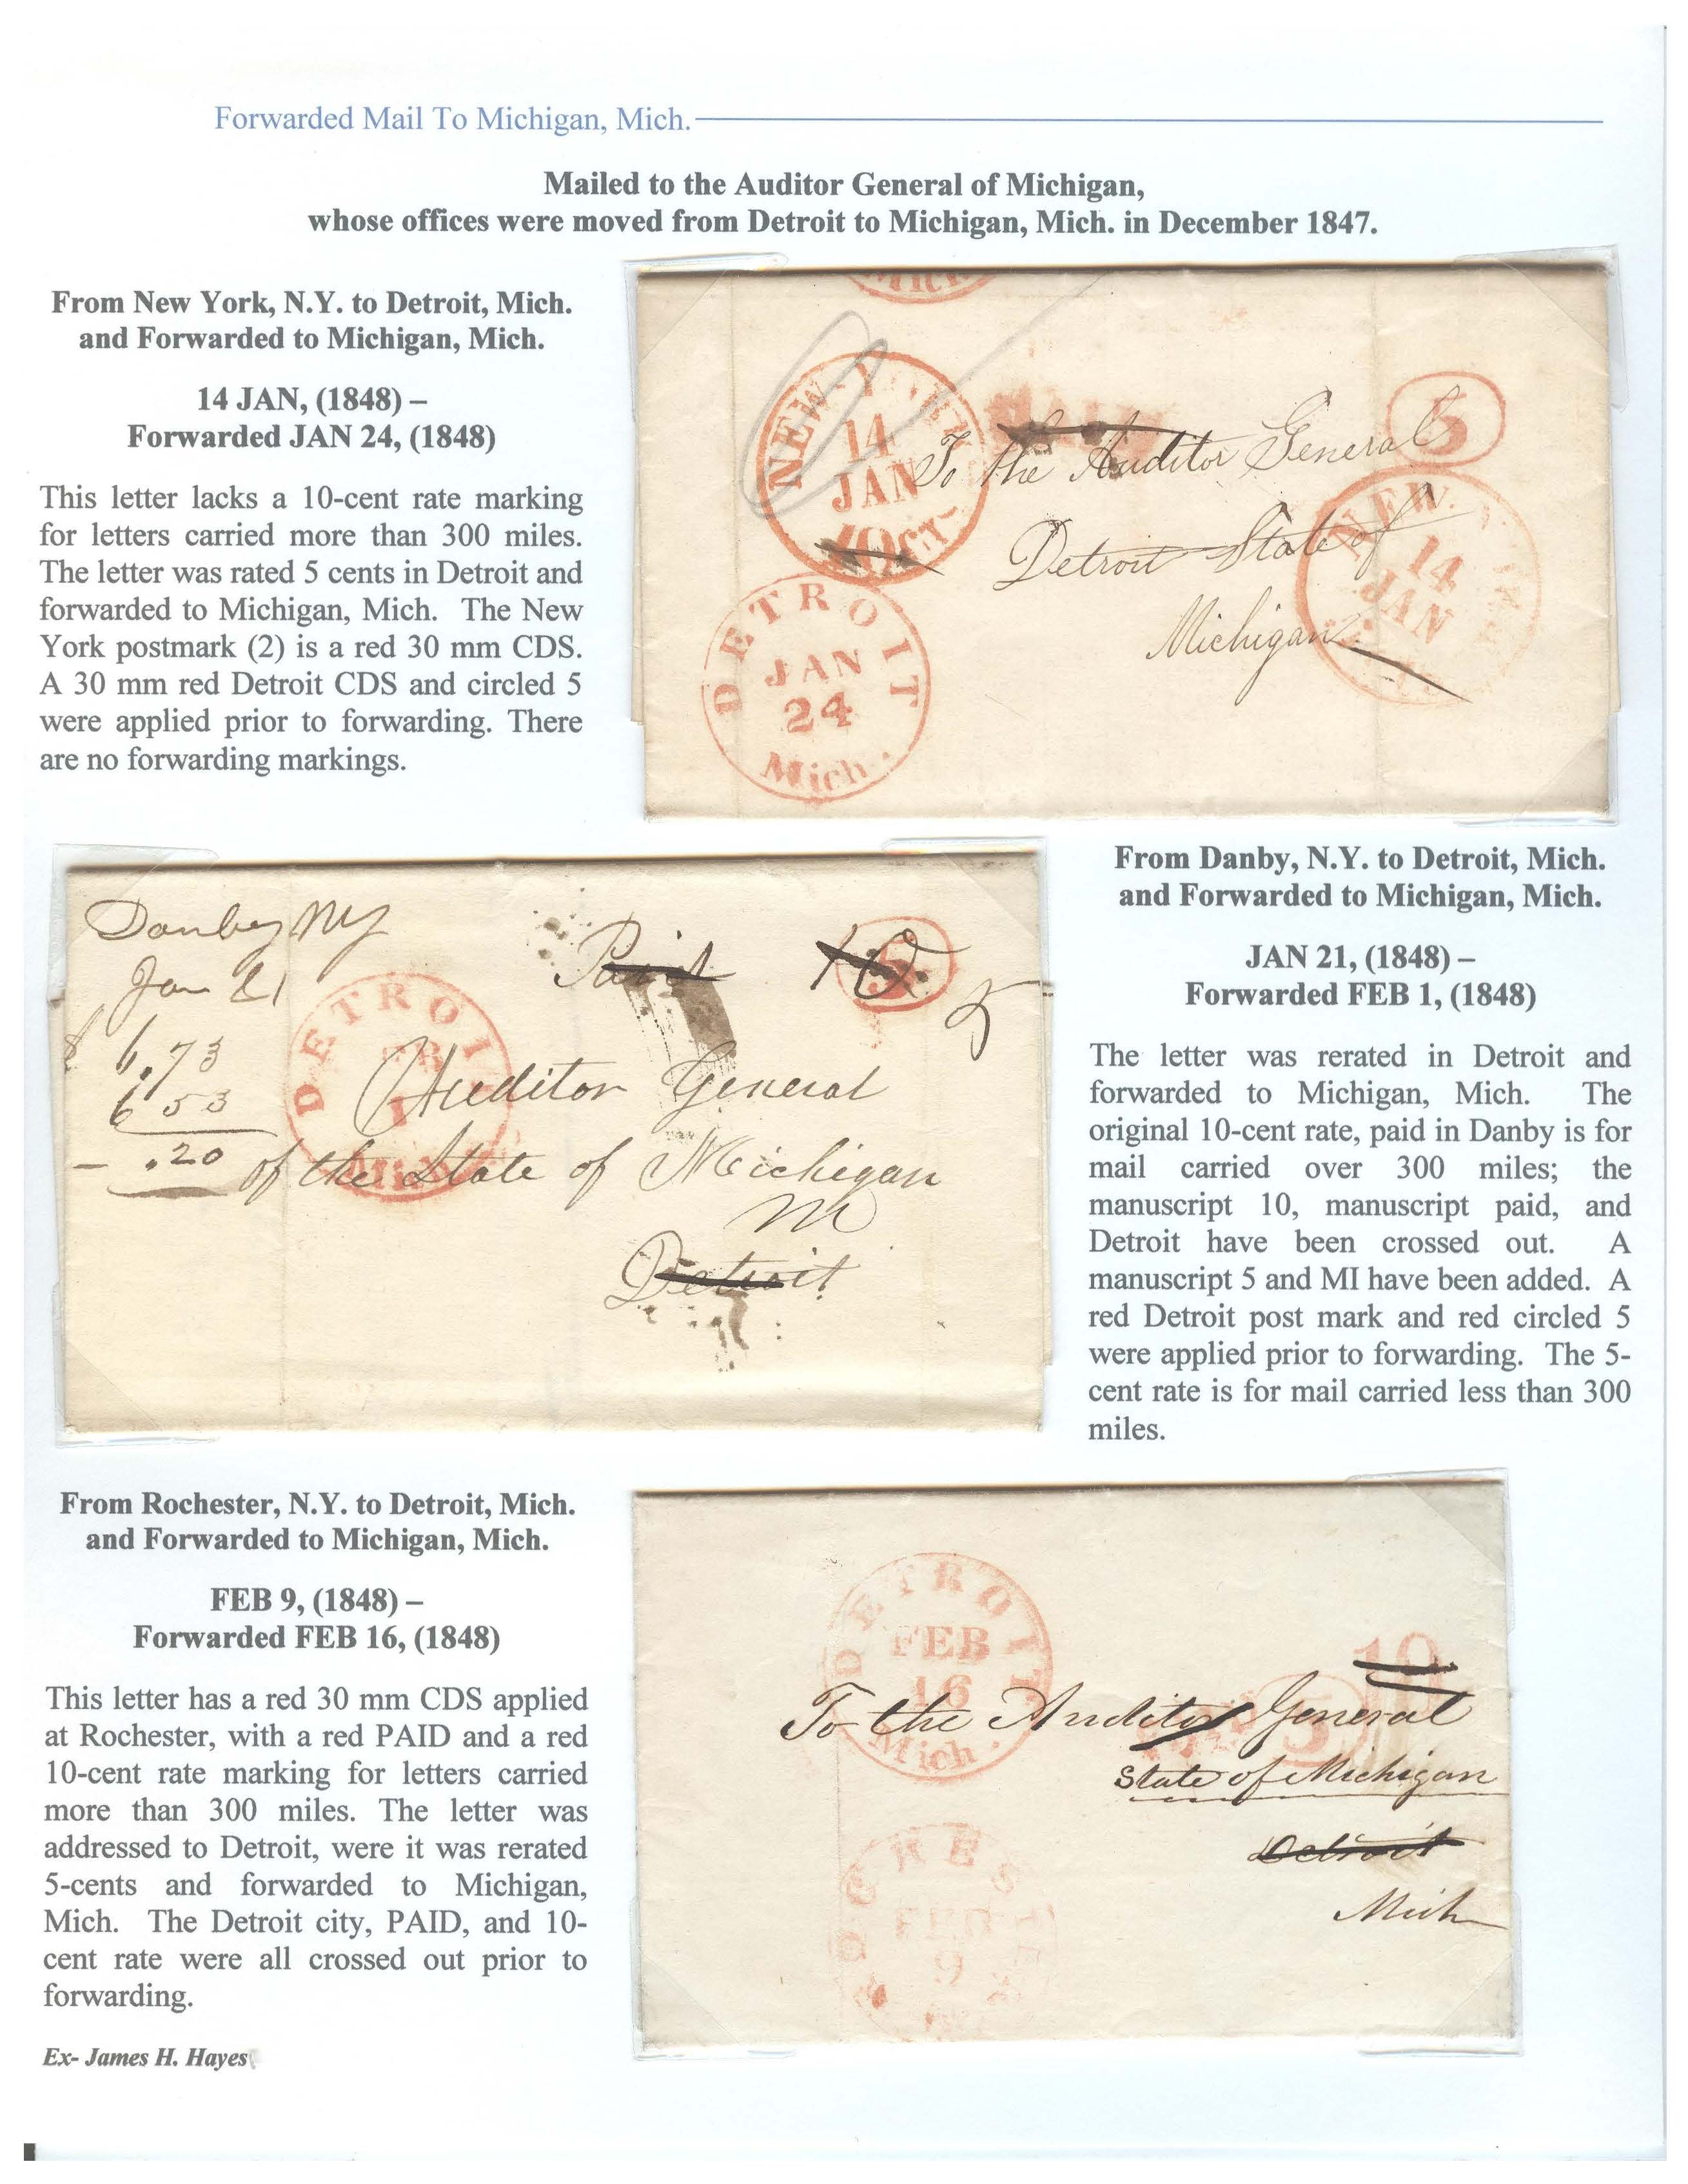 Forwarded Mail To Michigan, Mich.
Mailed to the Auditor General of Michigan,
whose offices were moved from Detroit to Michigan, Mich. in December 1847.
From New York, N.Y. to Detroit, Mich.
and Forwarded to Michigan, Mich.
14 JAN, (1848) –
Forwarded JAN 24, (1848)
This letter lacks a 10-cent rate marking
for letters carried more than 300 miles.
The letter was rated 5 cents in Detroit and
forwarded to Michigan, Mich. The New
York postmark (2) is a red 30 mm CDS.
A 30 mm red Detroit CDS and circled 5
were applied prior to forwarding. There
are no forwarding markings.
Mich.
NEW-YORK
14
JAN
10cts
5
To the Auditor General
Detroit State of
Michigan
NEW-YORK
14
JAN
DETROIT
JAN
24
Mich.
Danby NY
Jan 21
Paid 10
5
5
6.73
6 53
.20
DETROIT
1
Mich
Auditor General
of the State of Michigan
M
Detroit
From Danby, N.Y. to Detroit, Mich.
and Forwarded to Michigan, Mich.
JAN 21, (1848) –
Forwarded FEB 1, (1848)
The letter was rerated in Detroit and
forwarded to Michigan, Mich. The
original 10-cent rate, paid in Danby is for
mail carried over 300 miles; the
manuscript 10, manuscript paid, and
Detroit have been crossed out. A
manuscript 5 and MI have been added. A
red Detroit post mark and red circled 5
were applied prior to forwarding. The 5-
cent rate is for mail carried less than 300
miles.
From Rochester, N.Y. to Detroit, Mich.
and Forwarded to Michigan, Mich.
FEB 9, (1848) –
Forwarded FEB 16, (1848)
This letter has a red 30 mm CDS applied
at Rochester, with a red PAID and a red
10-cent rate marking for letters carried
more than 300 miles. The letter was
addressed to Detroit, were it was rerated
5-cents and forwarded to Michigan,
Mich. The Detroit city, PAID, and 10-
cent rate were all crossed out prior to
forwarding.
Ex- James H. Hayes
DETROIT
FEB
16
Mich.
10
5
To the Auditor General
State of Michigan
Detroit
Mich
ROCHESTER
FEB
9